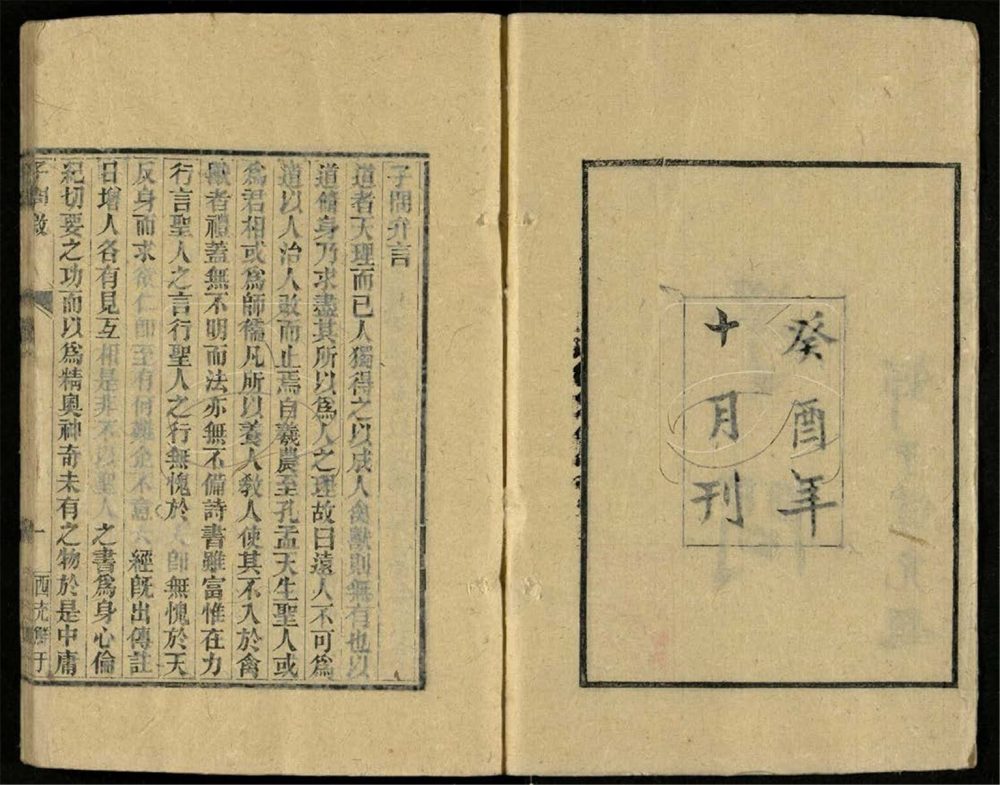 癸酉年
十月刊
子問弁言
道者天理而已人獨得之以成人禽獸則無有也以
道脩身乃求盡其所以為人之理故曰遠人不可為
道以人治人改而止焉自羲農至孔孟天生聖人或
為君相或為師儒凡所以養人教人使其不入於禽
獸者禮蓋無不明而法亦無不備詩書雖富惟在力
行言聖人之言行聖人之行無愧於人即無愧於天
反身而求欲仁即至有何難企不意六經既出傳註
日增人各有見互相是非不以聖人之書為身心倫
紀切要之功而以為精奧神奇未有之物於是中庸
子問
一
西充鮮于